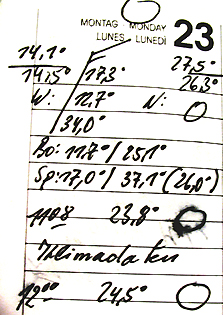 MONTAG MONDAY 23
LUNES LUNEDÌ
14,1° 27,5°
14,5° 17,3 26,3°
W: 12,7° N:
34,0°
Bo: 11.7° / 25,1°
Sp: 17,0° / 37,1° (26,0°)
23,8°
12⁰⁰ 24,5°